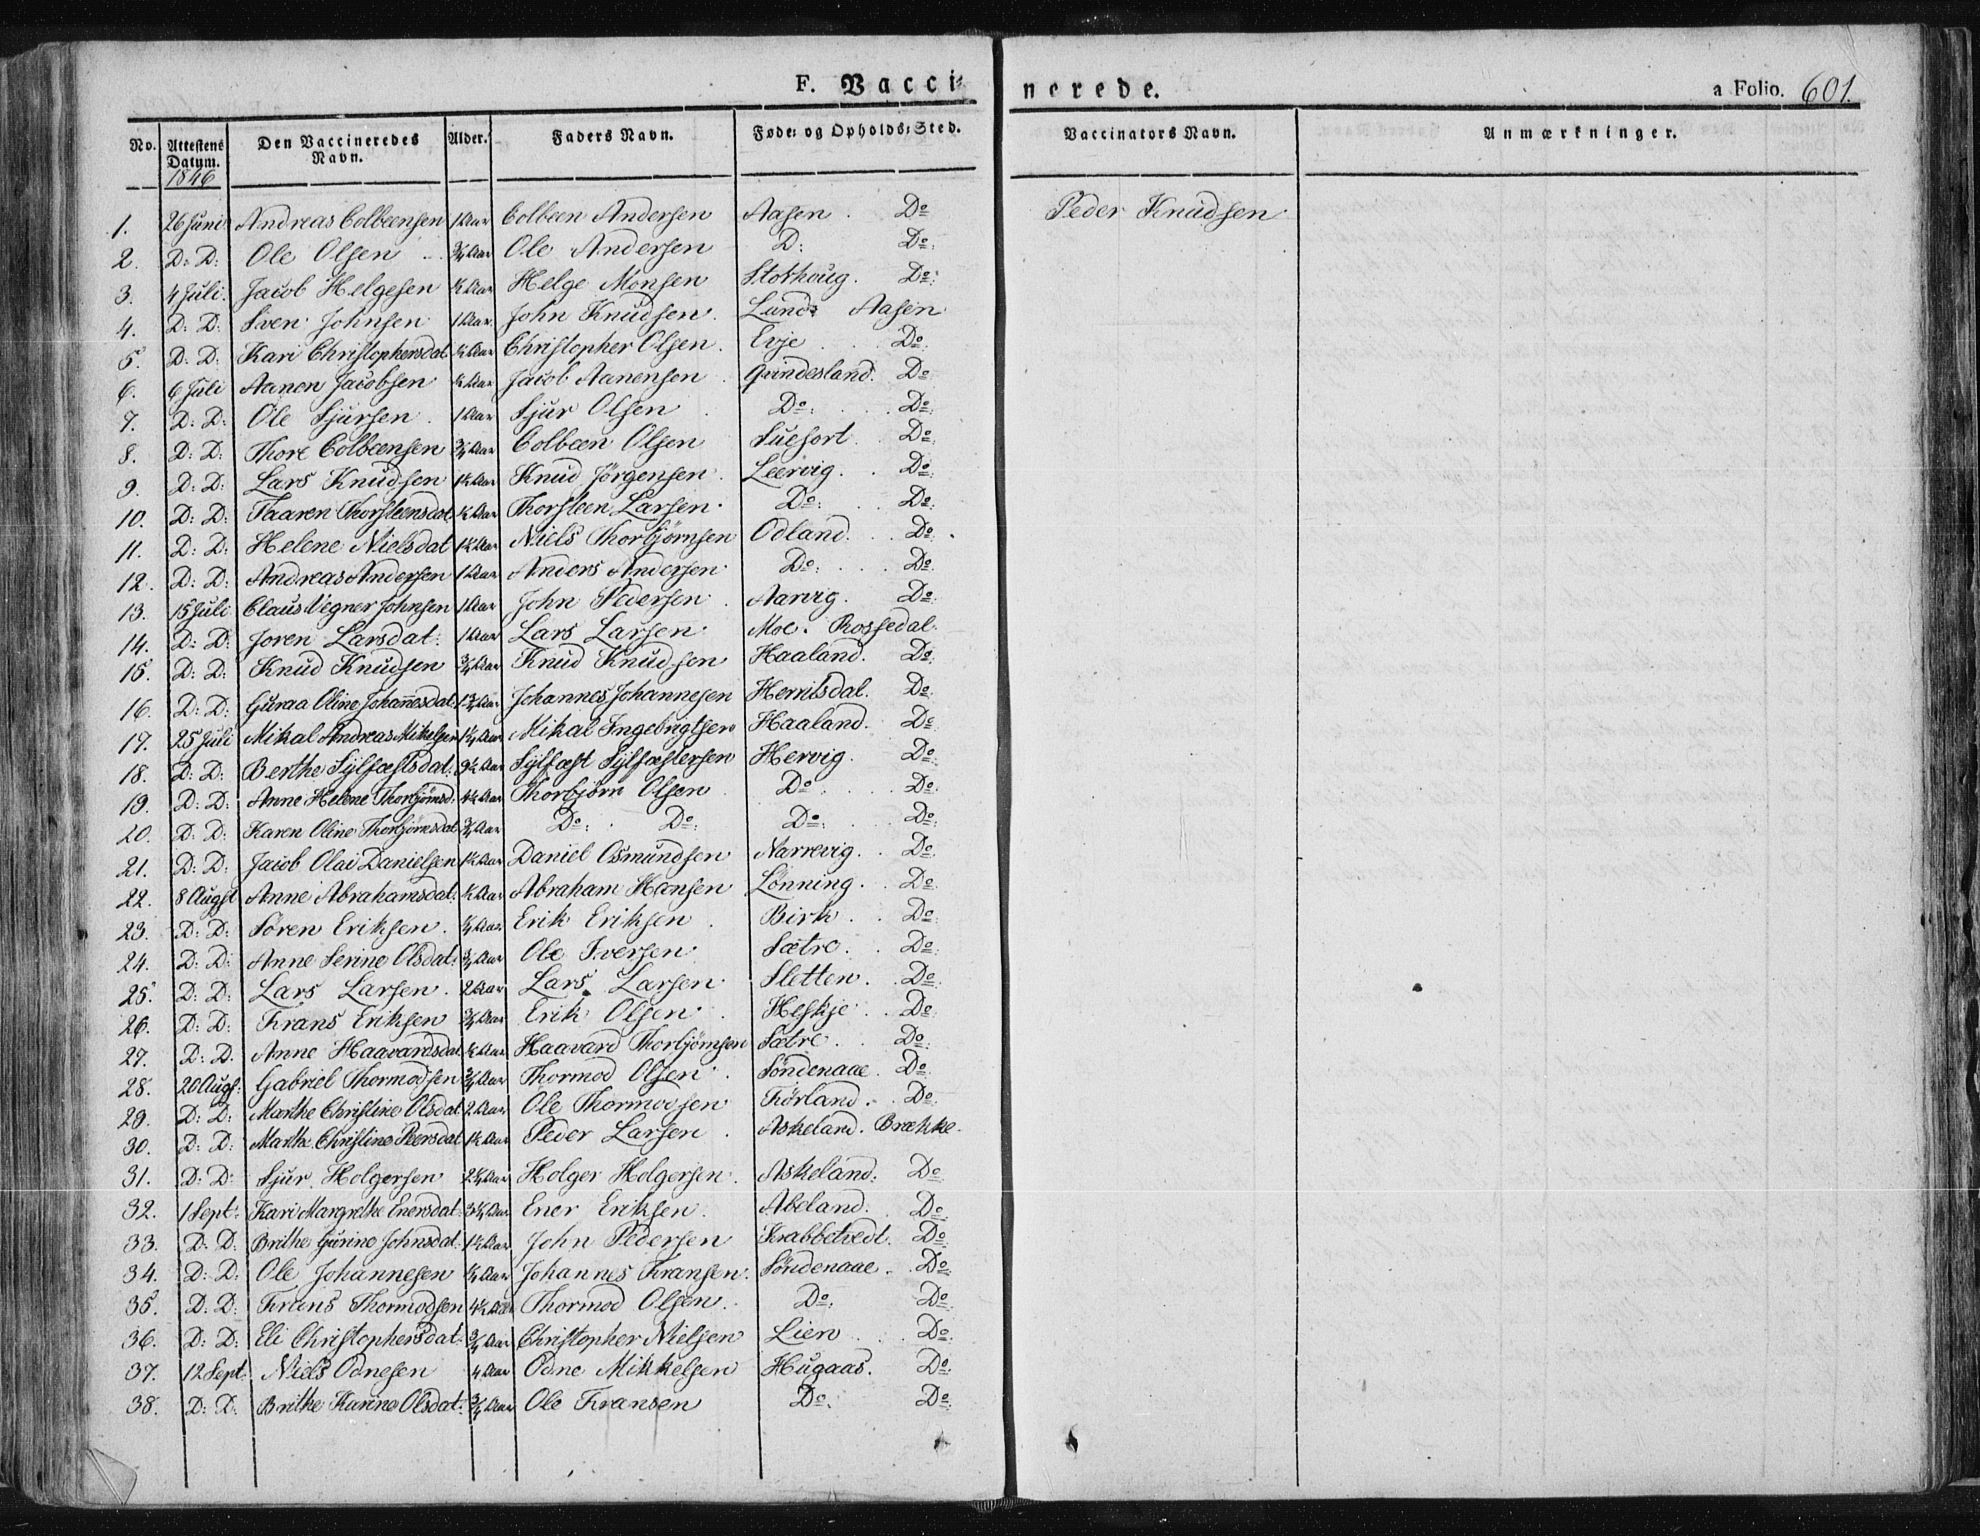 F. Vaccinerede. a Folio. 601.
No. Attestens Datum. Den Vaccineredes Navn. Alder. Faders Navn. Føde- og Opholds-Sted. Vaccinators Navn. Anmærkninger.
1846
1. 26 Juni Andreas Colbeensen 1 Aar Colbeen Andersen Aasen. Do Peder Knudsen
2. D: D: Ole Olsen ¾ Aar Ole Andersen D: Do:
3. 4 Juli. Jacob Helgesen ½ Aar Helge Monsen Stokhoug. Do:
4. D: D: Sven Johnsen 1 Aar. John Knudsen. Lunds Aasen
5. D: D: Kari Christophersdat Aar Christopher Olsen. Evje Do.
6. 6 Juli Aanon Jacobsen ½ Aar Jacob Aanensen. Qvindesland. Do
7. D: D: Ole Sjursen. 1 Aar Sjur Olsen Do: Do:
8. D: D: Thore Colbeensen ¾ Aar Colbeen Olsen Suefort. Do:
9. D: D: Lars Knudsen 1½ Aar Knud Jörgensen. Leervig. Do
10. D: D: Taaren Thorsteensdat. ½ Aar Thorsteen Larsen. Do: Do.
11. D: D: Helene Nielsdat 1½ Aar Niels Thorbjörnsen Odland. Do
12. D: D: Andreas Andersen 1 Aar Anders Andersen Do: Do.
13. 15 Juli Claus Vegner Johnsen 1 Aar John Pedersen. Aarvig. Do
14. D: D: Joren Larsdat: 1 Aar Lars Larsen. Moe. Rossedal.
15. D: D: Knud Knudsen ¾ Aar Knud Knudsen Haaland. Do:
16. D: D: Guraa Oline Johannesdat 1¾ Aar Johannes Johannesen Herritsdal. Do
17. 25 Juli Mikal Andreas Mikelsen 1¼ Aar Mikal Ingebrigtsen Haaland. Do
18. D: D: Berthe Sylfæstsdat. 9½ Aar Sylfæst Sylfæstersen Hervig. Do:
19. D: D: Anne Helene Thorbjörnsd: 4½ Aar Thorbjörn Olsen Do Do:
20. D: D: Karen Oline Thorbjörnsdat ¾ Aar Do: Do: Do: Do:
21. D: D: Jacob Olai Danielsen 1½ Aar Daniel Osmundsen Narrevig. Do
22. 8 Augst Anne Abrahamsdat: ½ Aar Abraham Hansen Lönning. Do
23. D: D: Sören Eriksen. Aar. Erik Eriksen. Birk. Do:
24. D: D: Anne Serine Olsdat: ¾ Aar Ole Iversen Sætre. Do
25. D: D: Lars Larsen. 2 Aar Lars Larsen Sletten. Do
26. D: D: Frans Eriksen ¾ Aar Erik Olsen. Heskje. Do
27. D: D. Anne Haavardsdat ½ Aar Haavard Thorbjörnsen Sætre. Do:
28. 20 Augs: Gabriel Thormodsen ¾ Aar Thormod Olsen. Söndenaae. Do
29. D: D: Marthe Christine Olsdat 2 Aar Ole Thormodsen Förland. Do
30. D: D: Marthe Christine Peersdat 1½ Aar Peder Larsen. Askeland. Brække.
31. D: D: Sjur Holgersen 2½ Aar Holger Holgersen. Askeland. Do
32. 1 Sept: Kari Margrethe Enersdat 3½ Aar Ener Eriksen. Abeland. Do
33. D: D: Brithe Gurine Johnsdat. 1½ Aar John Pedersen Krabbetvedt. Do
34. D: D: Ole Johannesen Aar Johannes Fransen. Söndenaae. Do
35. D. D: Frans Thormodsen 4½ Aar Thormod Olsen. Do: Do:
36. D: D: Eli Christophersdat. ¾ Aar Christopher Nielsen Lien Do.
37. 12 Sept Niels Odnesen 4 Aar Odne Mikkelsen Hugaas. Do:
38. D: D. Brithe Karine Olsdat. ¾ Aar Ole Fransen Do: Do: